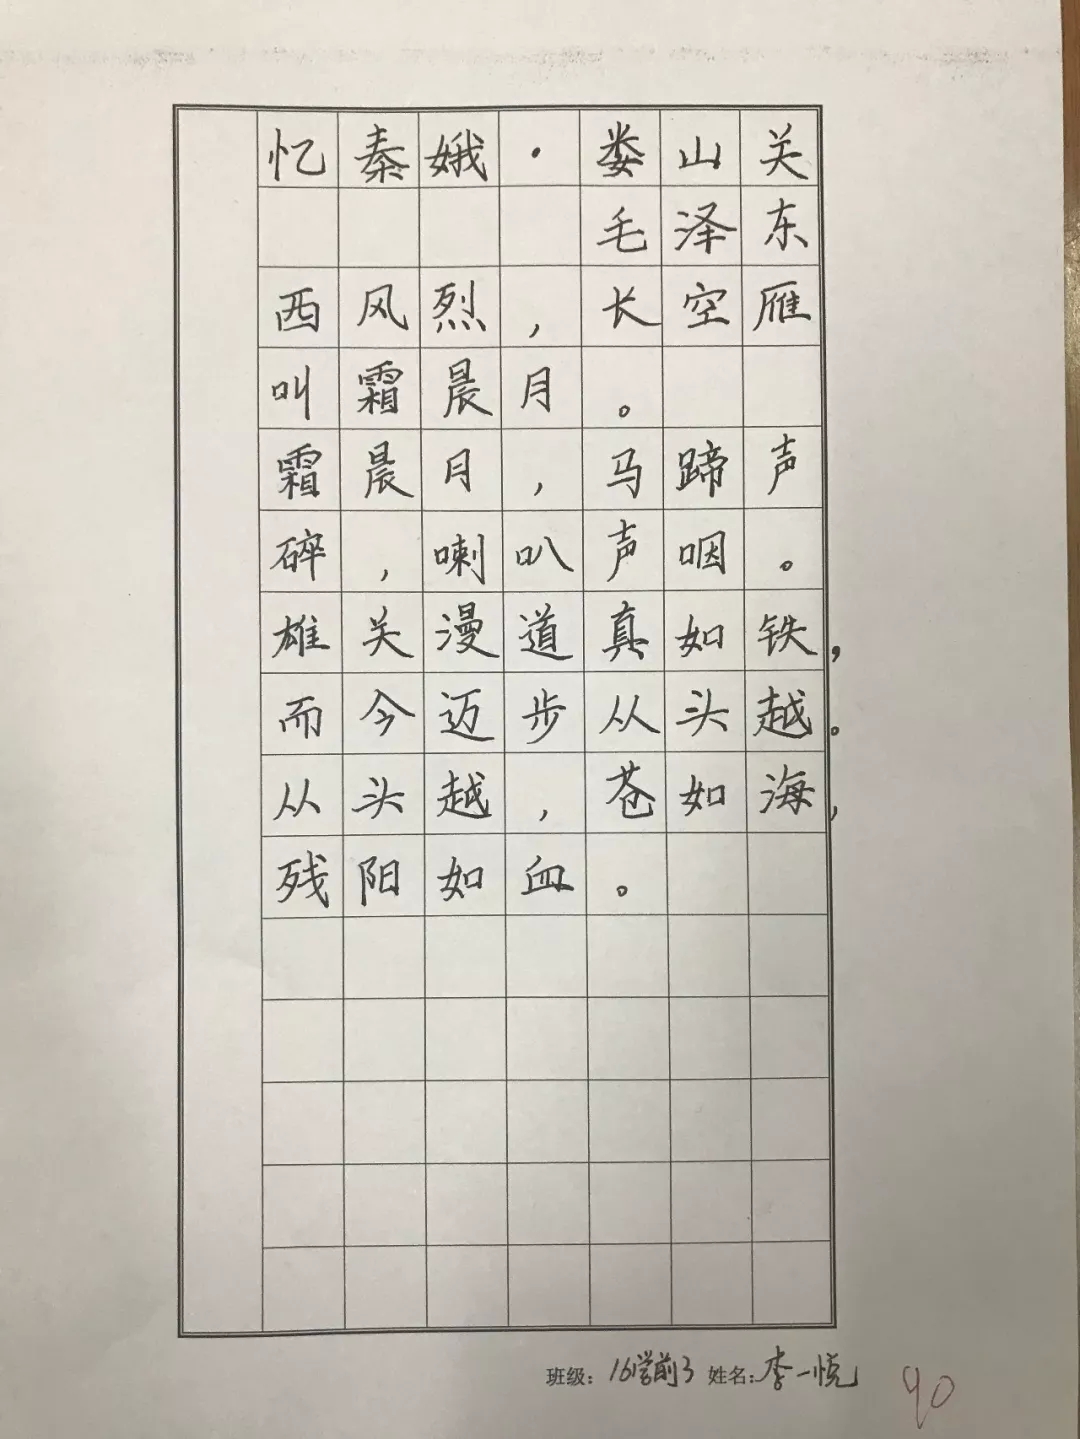 忆秦娥·娄山关
毛泽东
西风烈，长空雁
叫霜晨月。
霜晨月，马蹄声
碎，喇叭声咽。
雄关漫道真如铁，
而今迈步从头越。
从头越，苍如海，
残阳如血。
班级：16学前3 姓名：李一悦
90